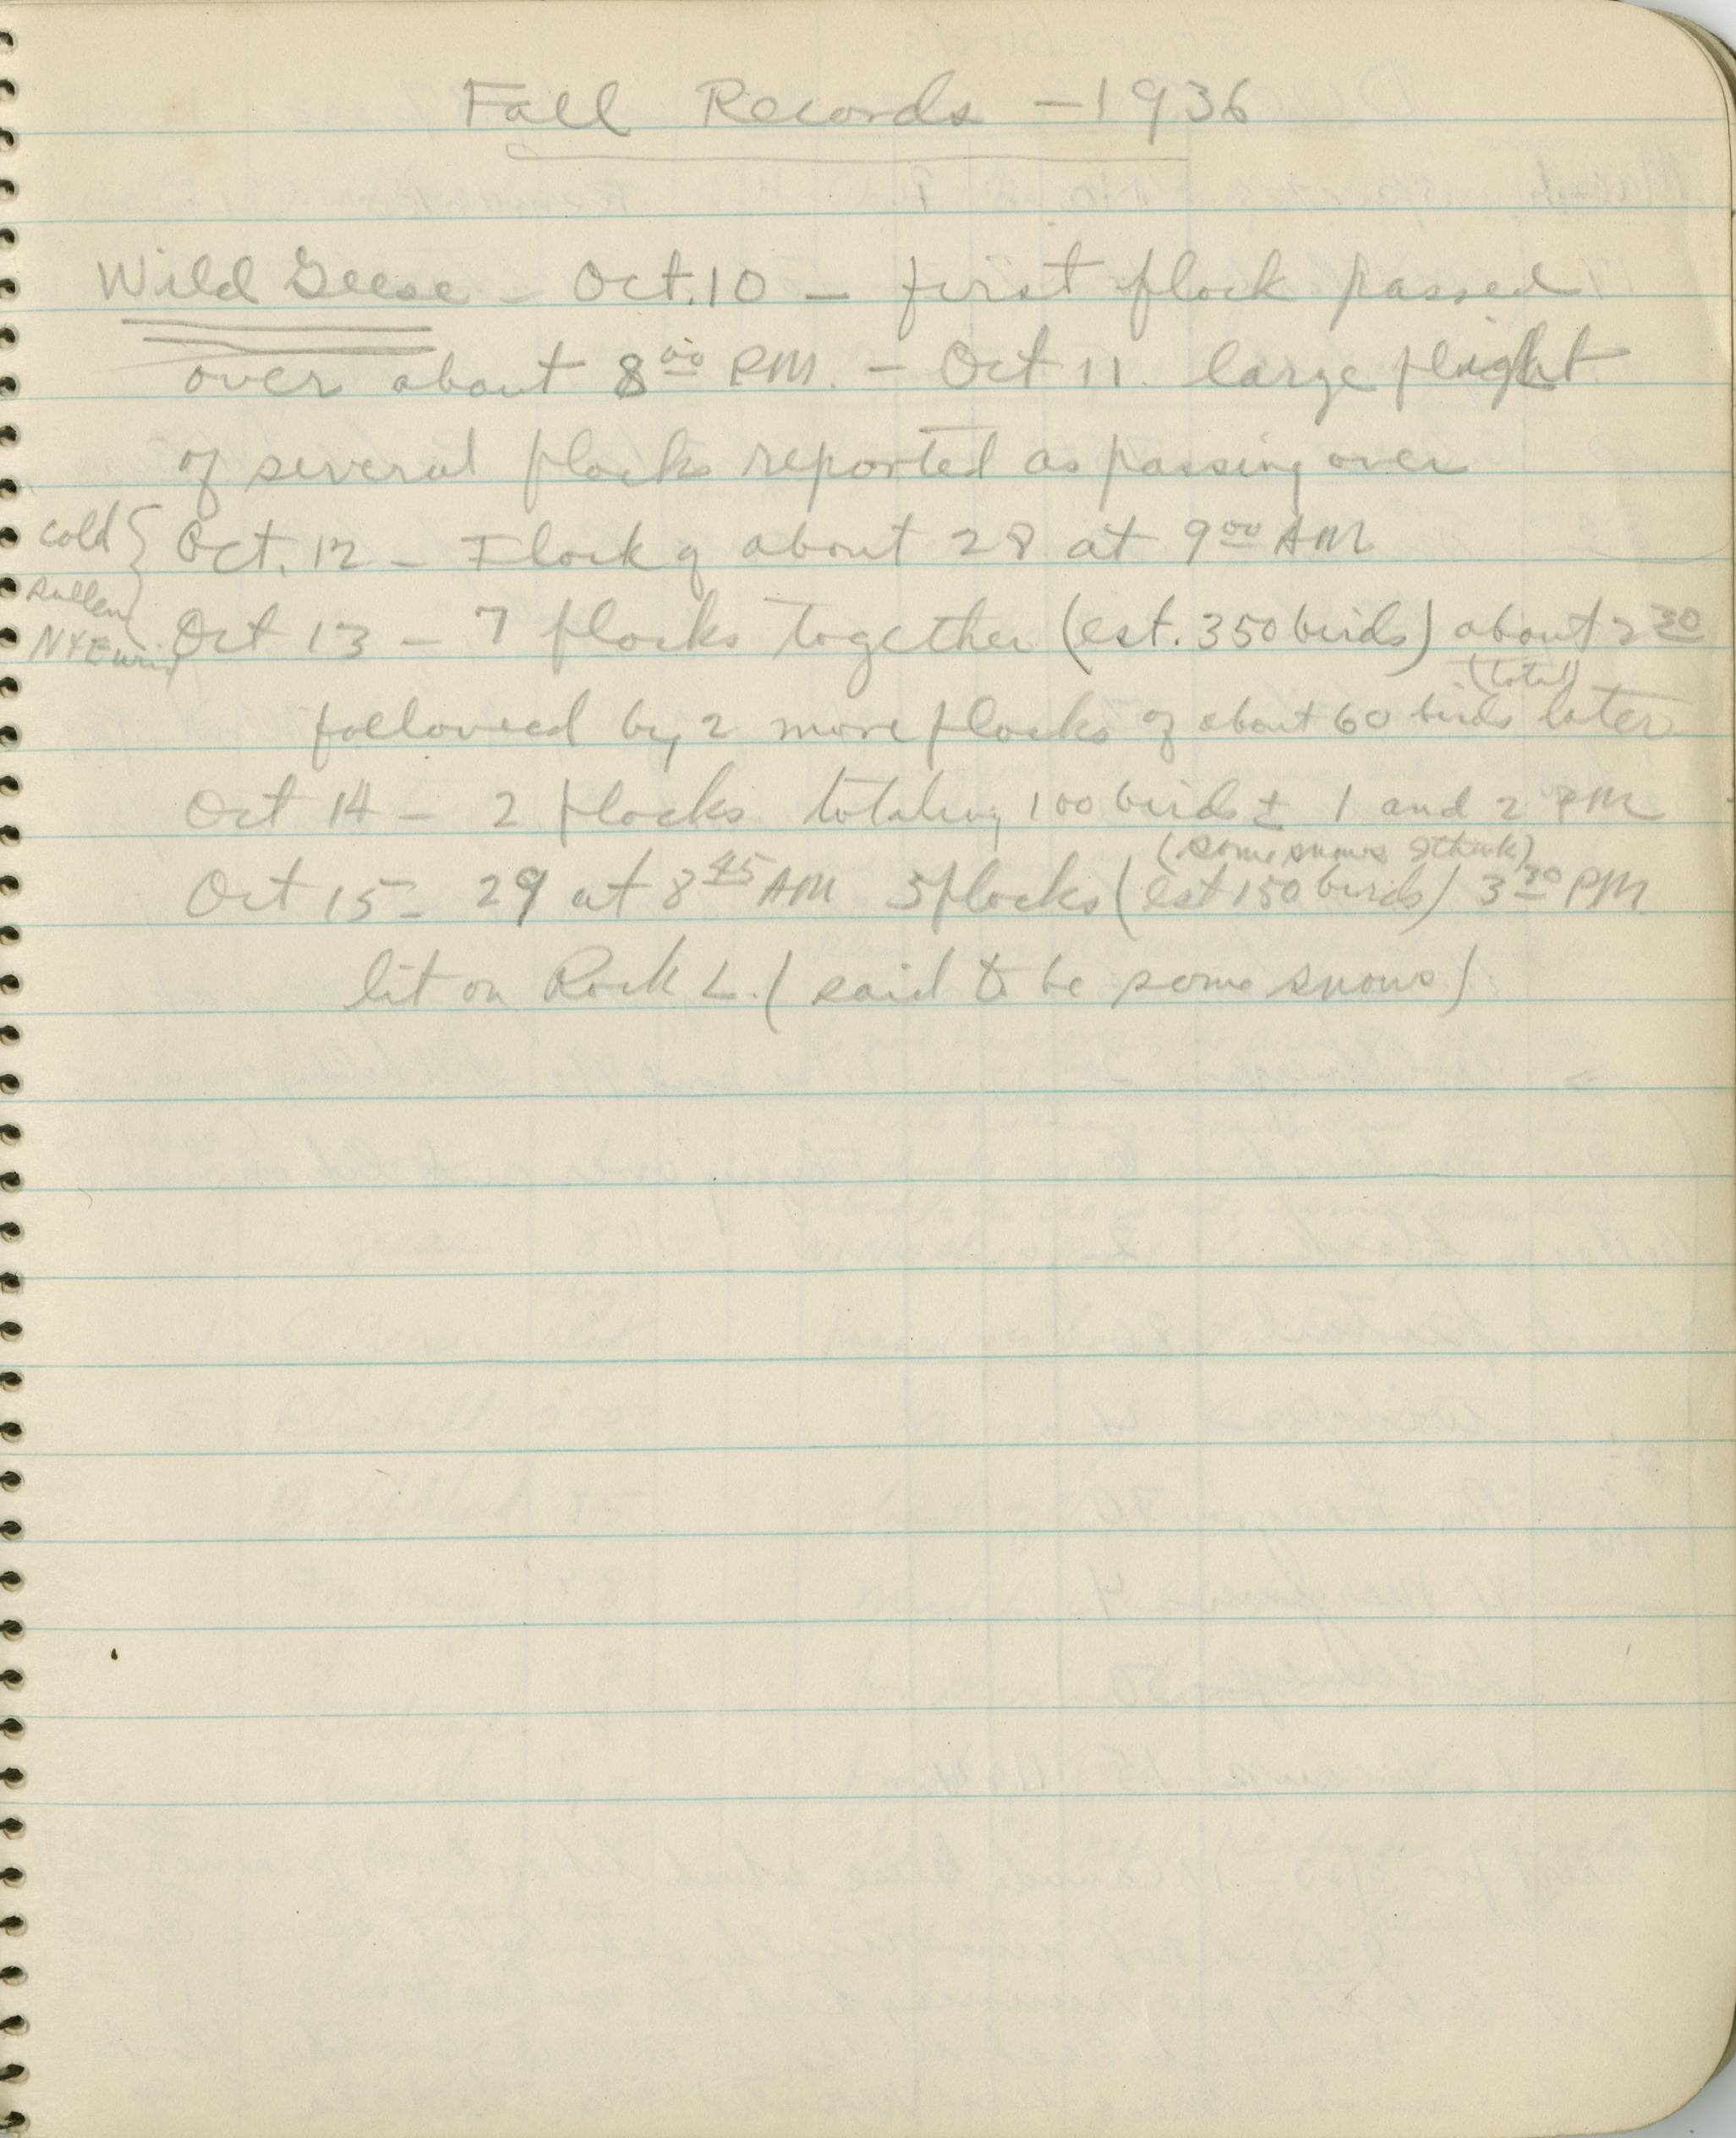 Fall Records - 1936
Wild Geese - Oct. 10 - first flock passed
over about 8 00 P.M. - Oct 11. large flight
of several flocks reported as passing over
cold { Oct. 12 - Flock of about 28 at 9 00 AM
sullen
N & E wind Oct 13 - 7 flocks together (est. 350 birds) about 2 30
(total)
followed by 2 more flocks of about 60 birds later
Oct 14 - 2 flocks totaling 100 birds ± 1 and 2 PM
(some snows I think)
Oct 15 - 29 at 8 45 AM 5 flocks (est 150 birds) 3 30 PM
lit on Rock L. (said to be some snows)